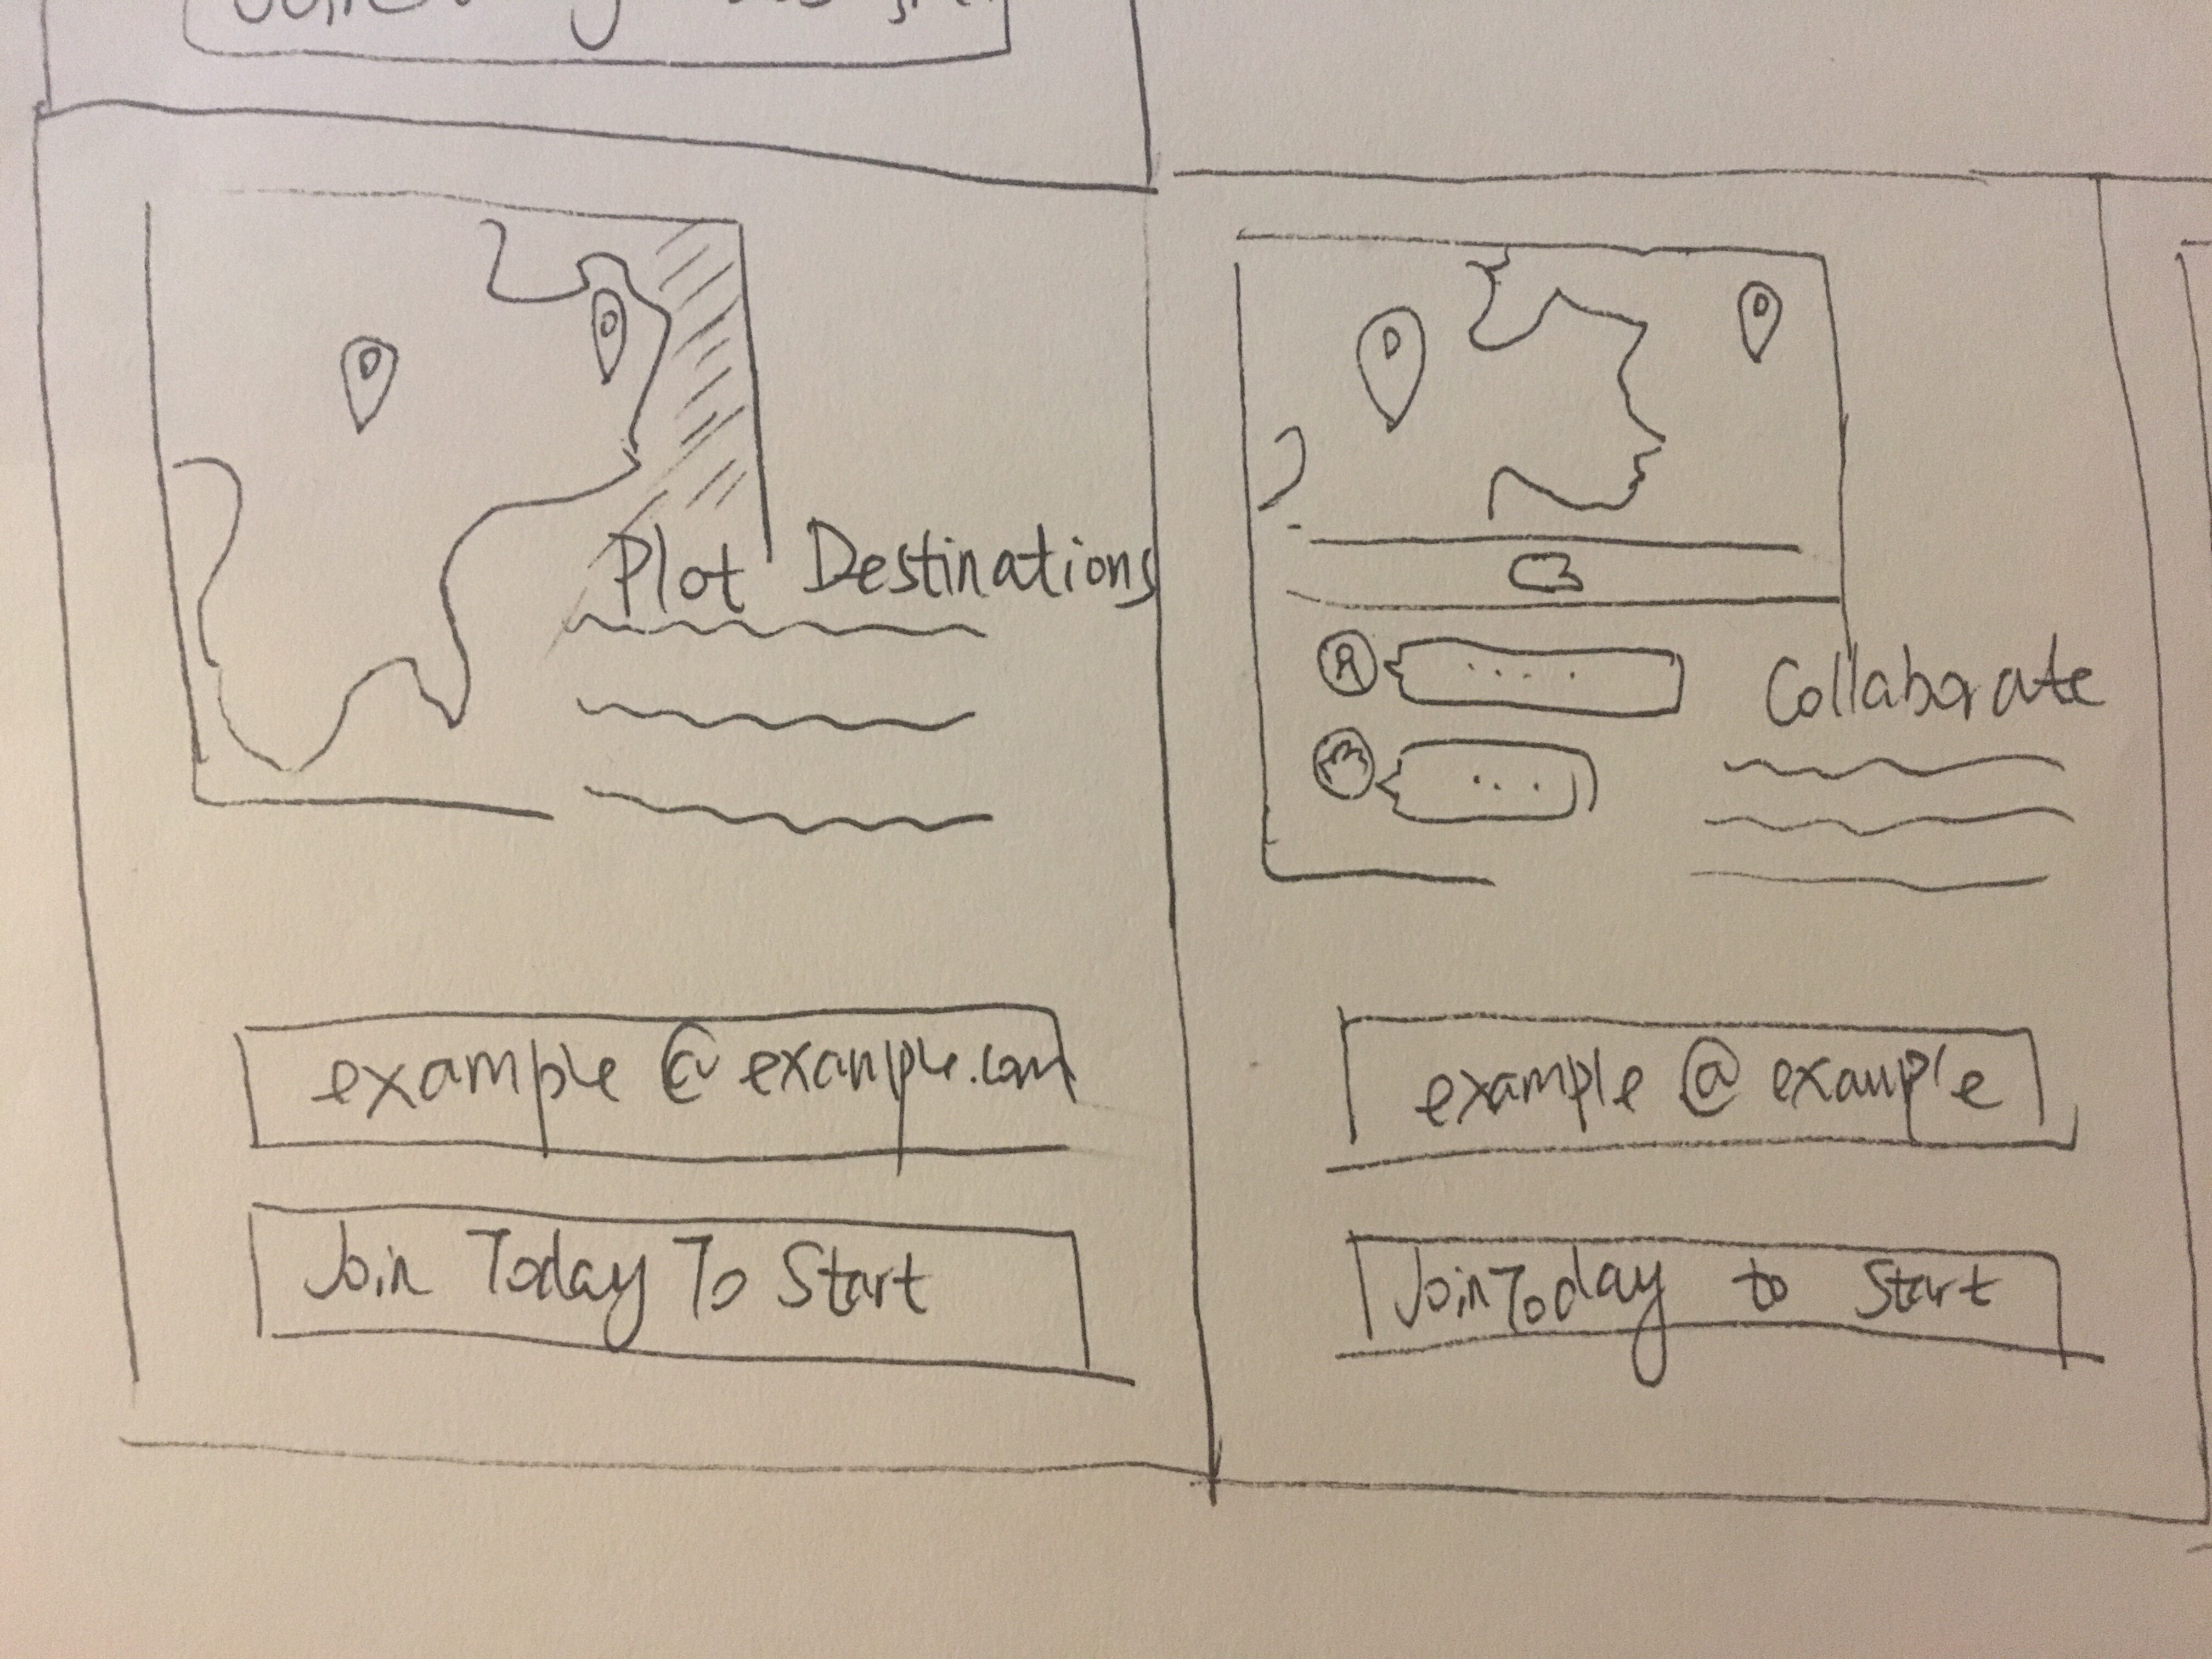 Plot Destinations
example@example.com
Join Today To Start
Collaborate
example @ example
Join Today to Start